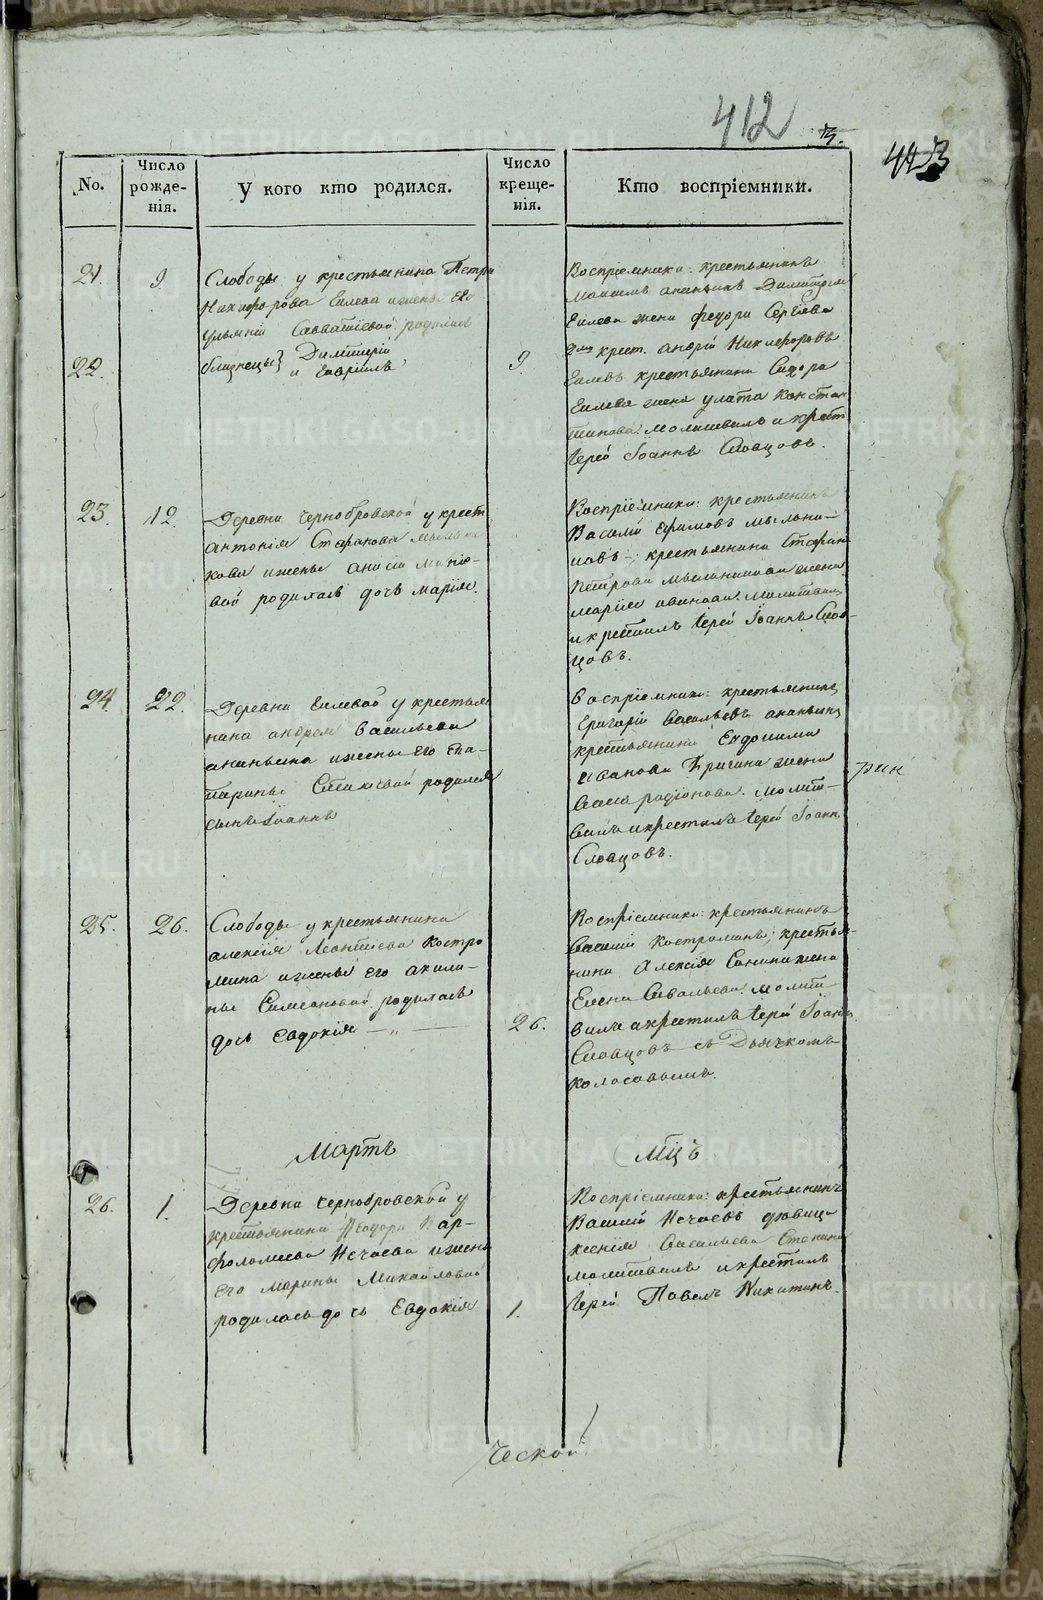 412
No.
Число рожденія.
У кого кто родился.
Число крещенія.
Кто воспріемники.
21.
9.
Слободы у крестьянина Петра
Никифорова Гилева и жены его
Ульяніи Савватіевой родились
22.
близнецы Димитрій
и Гавріилъ
9.
Воспріемники: крестьянинъ
Димитрій
Гилева жена Сергіева
крест. Андрей Никифоровъ
Гилевъ крестьянина Сидора
Гилева жена Улита Констан
тинова. молитвилъ и крест.
Іерей Іоаннъ Словцовъ.
23.
12.
Деревни Чернобровской у крест.
Антонія Стефанова Мыльни
кова и жены
вой родилась дочь Марія.
Воспріемники: крестьянинъ
Василій Ефимовъ Мыльни-
ковъ; крестьянина Стефана
Петрова Мыльникова жена
Марія Иванова. Молитвилъ
и крестилъ Іерей Іоаннъ Слов-
цовъ.
24.
22.
Деревни Гилевой у крестья
нина Андрея Васильева
Ананьина и жены его Ека-
терины родился
сынъ Іоаннъ
Воспріемники: крестьянинъ
Григорій Васильевъ Ананьинъ
крестьянина Евдокима
Иванова жена
Родіонова. Молит-
вилъ и крестилъ Іерей Іоаннъ
Словцовъ.
25.
26.
Слободы у крестьянина
Алексія Леонтіева Костро
мина и жены его Акили-
ны Симеоновой родилась
дочь Евдокія — „ —
26.
Воспріемники: крестьянинъ
Василій Костроминъ; крестья-
нина Алексія жена
Елена Савельева. Молит-
вилъ и крестилъ Іерей Іоаннъ
Словцовъ съ Дьячкомъ
Колосовымъ.
Мартъ
Мцъ
26.
1.
Деревни Чернобровской у
крестьянина Феодора Вар-
фоломеева Нечаева и жены
его Марины Михайловой
родилась дочь Евдокія
1.
Воспріемники: крестьянинъ
Василій Нечаевъ девица
Ксенія Васильева
молитвилъ и крестилъ
Іерей Павелъ Никитинъ.
ческой
METRIKI.GASO-URAL.RU